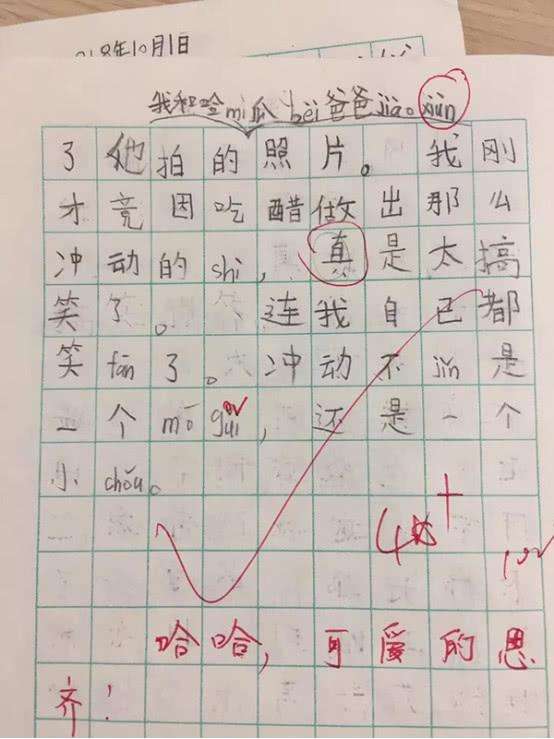 10月1日
我和哈mì瓜 bèi爸爸jiāo xùn
了他拍的照片。我刚
才竟因吃醋做出那么
冲动的shì，真是太搞
笑了。连我自己都
笑fān了。冲动不jǐn是
一个mó guǐ，还是一个
小chǒu。
哈哈，可爱的思
齐！